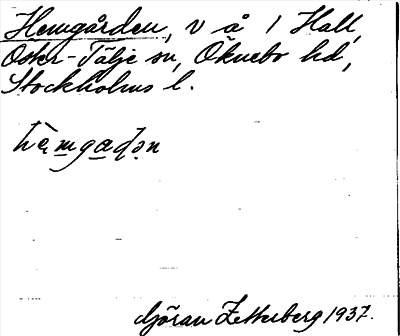 Hemgården, v å 1 Hall,
Öster-Tälje sn, Öknebo hd,
Stockholms l.
hèmgaḍọn
Göran Zetterberg 1937.